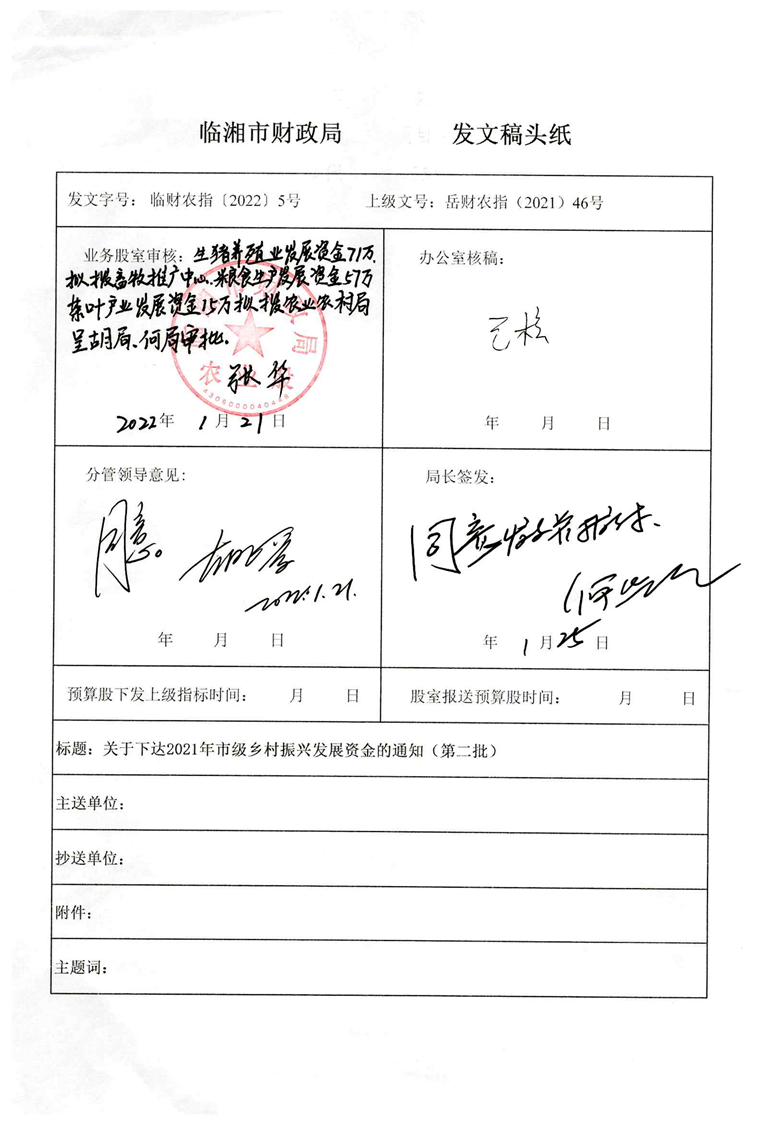 临湘市财政局 发文稿头纸
发文字号：临财农指〔2022〕5号 上级文号：岳财农指（2021）46号
业务股室审核：生猪养殖业发展资金71万.
拟拨畜牧推广中心.粮食生产发展资金57万
茶叶产业发展资金15万拟拨农业农村局
呈胡局、何局审批.
张华
农业股
4306000040448
2022年 1月21日
办公室核稿：
已核
年 月 日
分管领导意见：
同意。
2022.1.21.
年 月 日
局长签发：
同意
年 1月25日
预算股下发上级指标时间： 月 日
股室报送预算股时间： 月 日
标题：关于下达2021年市级乡村振兴发展资金的通知（第二批）
主送单位：
抄送单位：
附件：
主题词：